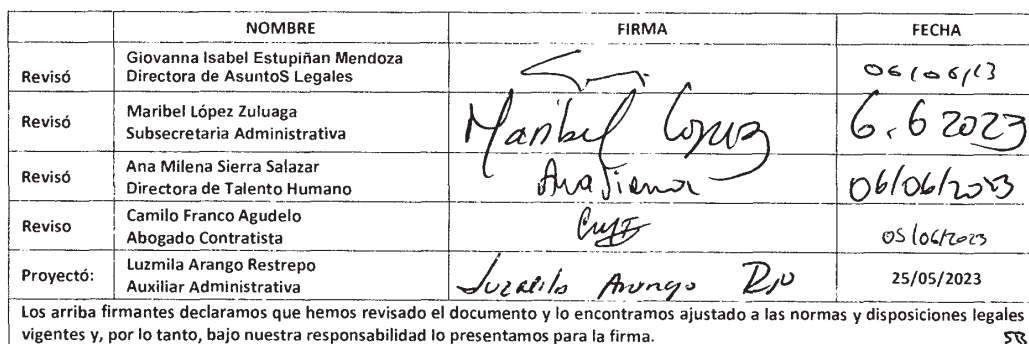 NOMBRE FIRMA FECHA
Revisó Giovanna Isabel Estupiñan Mendoza
Directora de AsuntoS Legales 06/06/23
Revisó Maribel López Zuluaga
Subsecretaria Administrativa Maribel López 6.6 2023
Revisó Ana Milena Sierra Salazar
Directora de Talento Humano Ana Sierra 06/06/2023
Reviso Camilo Franco Agudelo
Abogado Contratista 05/06/2023
Proyectó: Luzmila Arango Restrepo
Auxiliar Administrativa Luzmila Arango 25/05/2023
Los arriba firmantes declaramos que hemos revisado el documento y lo encontramos ajustado a las normas y disposiciones legales
vigentes y, por lo tanto, bajo nuestra responsabilidad lo presentamos para la firma.